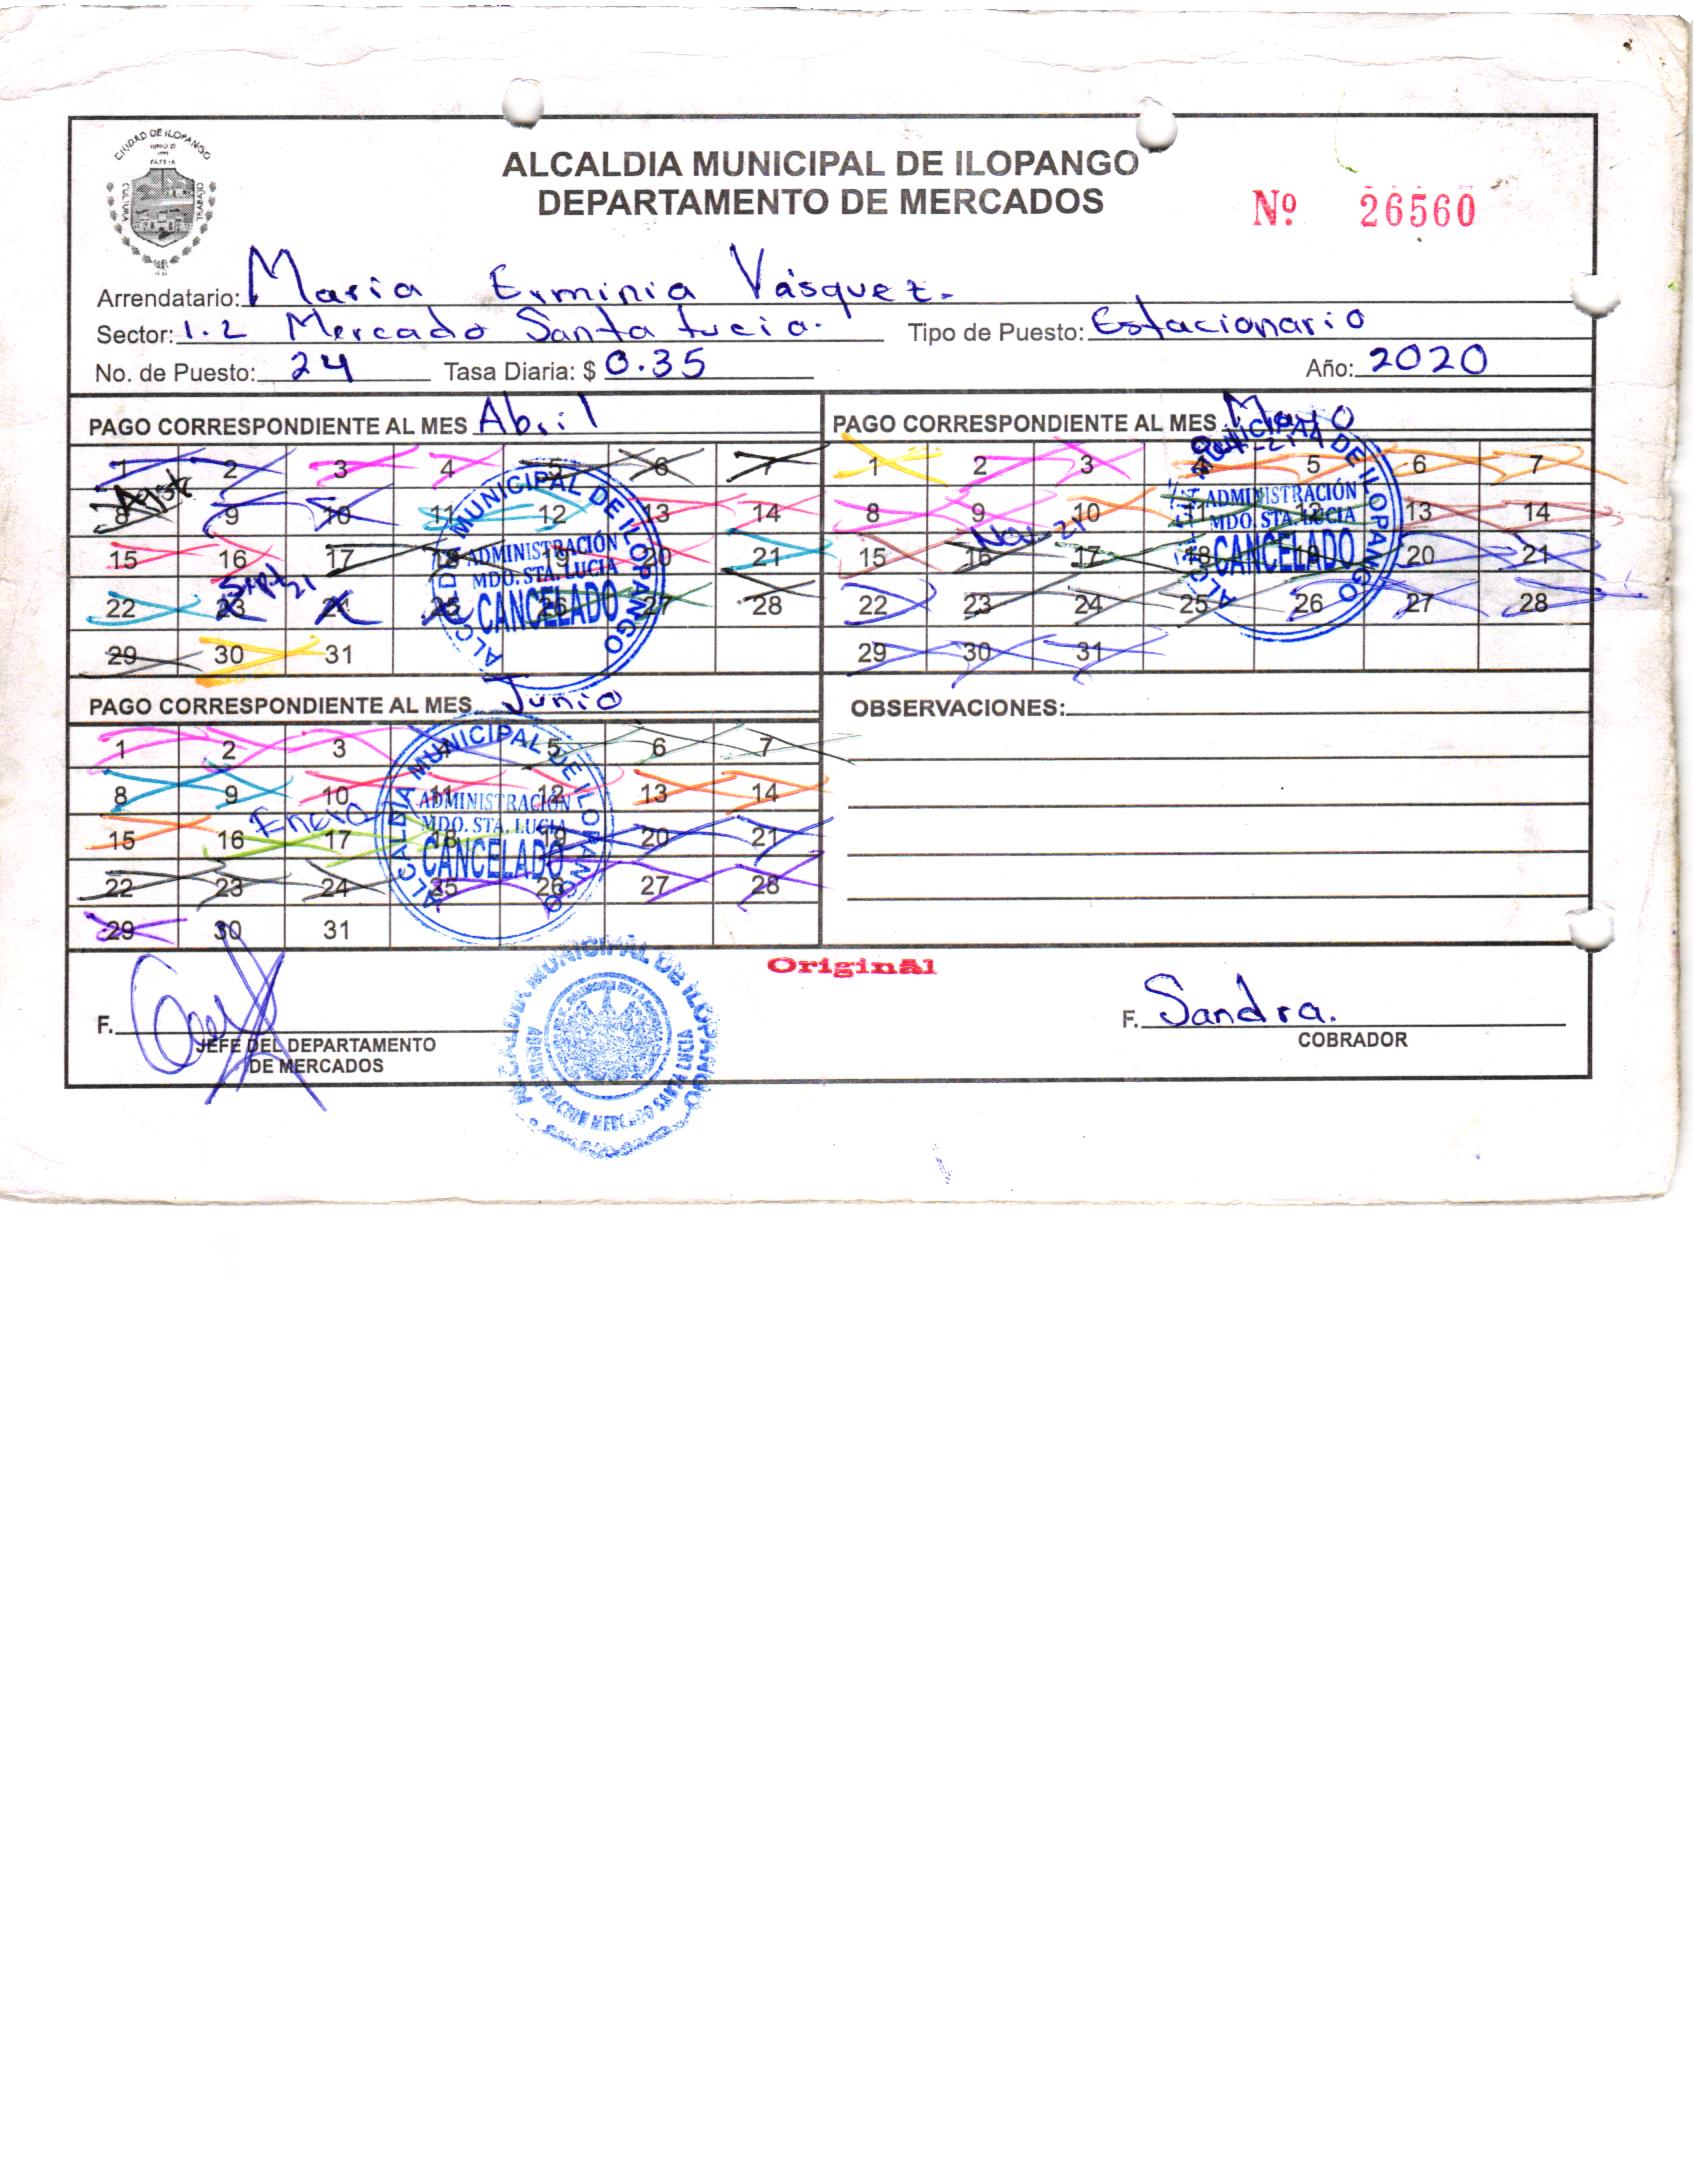 CIUDAD DE ILOPANGO
CULTURA
TRABAJO
ALCALDIA MUNICIPAL DE ILOPANGO
DEPARTAMENTO DE MERCADOS
Nº 26560
Arrendatario: Maria Erminia Vásquez.
Sector: 1.2 Mercado Santa Lucia. Tipo de Puesto: Estacionario
No. de Puesto: 24 Tasa Diaria: $ 0.35 Año: 2020
PAGO CORRESPONDIENTE AL MES Abril
1 2 3 4 5 6 7
Agst
8 9 10 11 12 13 14
15 16 17 18 19 20 21
Sept 21
22 23 24 25 26 27 28
29 30 31
ALCALDIA MUNICIPAL DE ILOPANGO
ADMINISTRACIÓN
MDO. STA. LUCIA
CANCELADO
PAGO CORRESPONDIENTE AL MES Mayo
1 2 3 4 5 6 7
8 9 10 11 12 13 14
Nov. 21
15 16 17 18 19 20 21
22 23 24 25 26 27 28
29 30 31
ALCALDIA MUNICIPAL DE ILOPANGO
ADMINISTRACIÓN
MDO. STA. LUCIA
CANCELADO
PAGO CORRESPONDIENTE AL MES Junio
1 2 3 4 5 6 7
8 9 10 11 12 13 14
Enero
15 16 17 18 19 20 21
22 23 24 25 26 27 28
29 30 31
ALCALDIA MUNICIPAL DE ILOPANGO
ADMINISTRACIÓN
MDO. STA. LUCIA
CANCELADO
OBSERVACIONES:
Original
F.
JEFE DEL DEPARTAMENTO
DE MERCADOS
MUNICIPAL DE ILOPANGO
ADMINISTRACION MERCADO SANTA LUCIA
F. Sandra.
COBRADOR